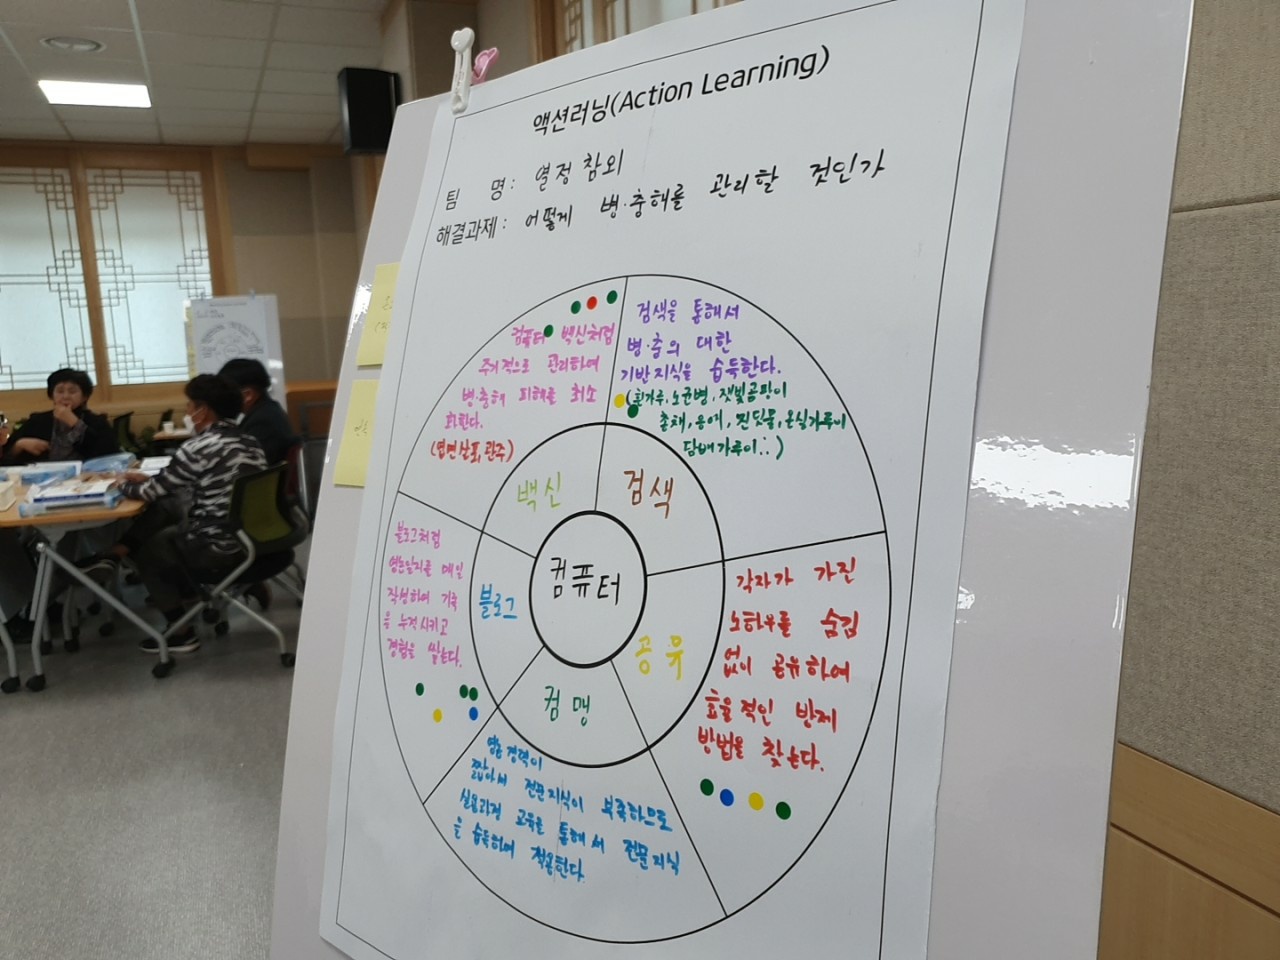 액션러닝(Action Learning)
팀 명: 열정참외
해결과제: 어떻게 병·충해를 관리할 것인가
컴퓨터 백신처럼
주기적으로 관리하여
병·충해 피해를 최소
화한다.
(엽면살포, 관주)
검색을 통해서
병·충의 대한
기반지식을 습득한다.
(흰가루, 노균병, 잿빛곰팡이
총채, 응애, 진딧물, 온실가루이
담배가루이..)
백신
검색
컴퓨터
블로그
공유
컴맹
블로그처럼
영농일지를 매일
작성하여 기록
을 누적시키고
경험을 쌓는다.
각자가 가진
노하우를 숨김
없이 공유하여
효율적인 방제
방법을 찾는다.
영농경력이
짧아서 전문지식이 부족하므로
교육을 통해서 전문지식
을 습득하여 적용한다.